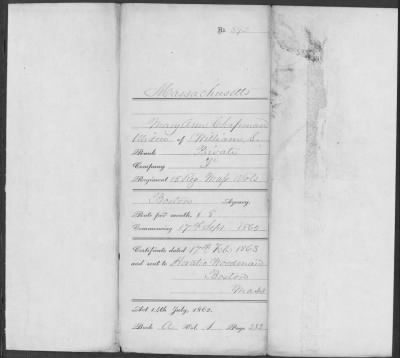 No.
Massachusetts
Mary Ann Chapman
Widow of William S.
Rank Private
Company
Regiment 15 Reg Mass Vols
Boston Agency.
Rate per month, $ 8
Commencing 17th Sept 1862
Certificate dated 17th Feb 1863
and sent to Horatio Woodman
Boston
Mass
Act 14th July, 1862.
Book A Vol. 1 Page 232